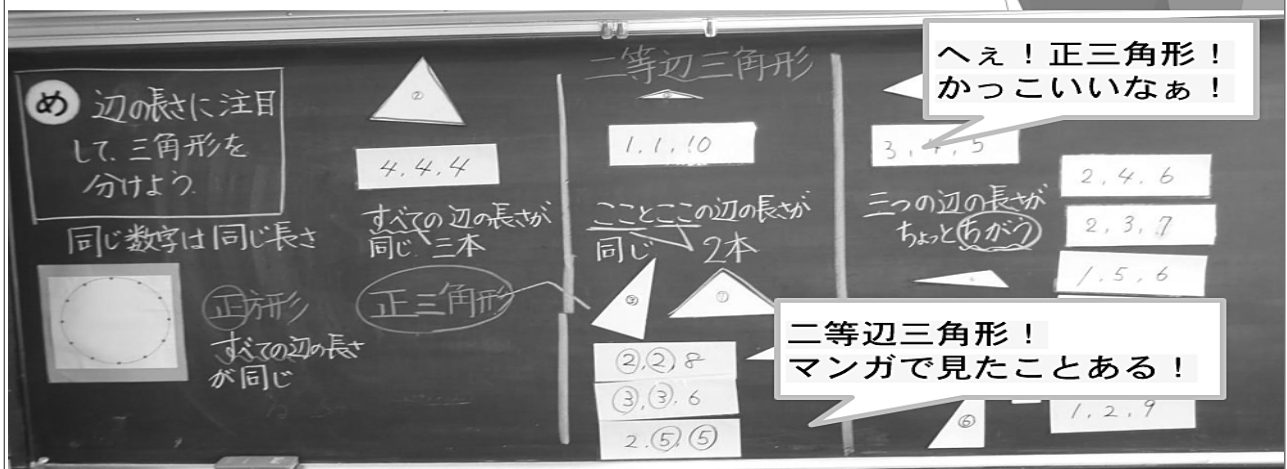 め 辺の長さに注目
して、三角形を
分けよう.
同じ数字は同じ長さ
正方形
すべての辺の長さ
が同じ
②
4.4.4
すべての辺の長さが
同じ 三本
正三角形
二等辺三角形
1.1.10
ここここの辺の長さが
同じ 2本
③
⑦
②,②,8
③,③.6
2.⑤.⑤
へぇ！正三角形！
かっこいいなぁ！
三つの辺の長さが
ちょっとちがう
2.4.6
2.3.7
1.5.6
二等辺三角形！
マンガで見たことある！
⑥
1.2.9